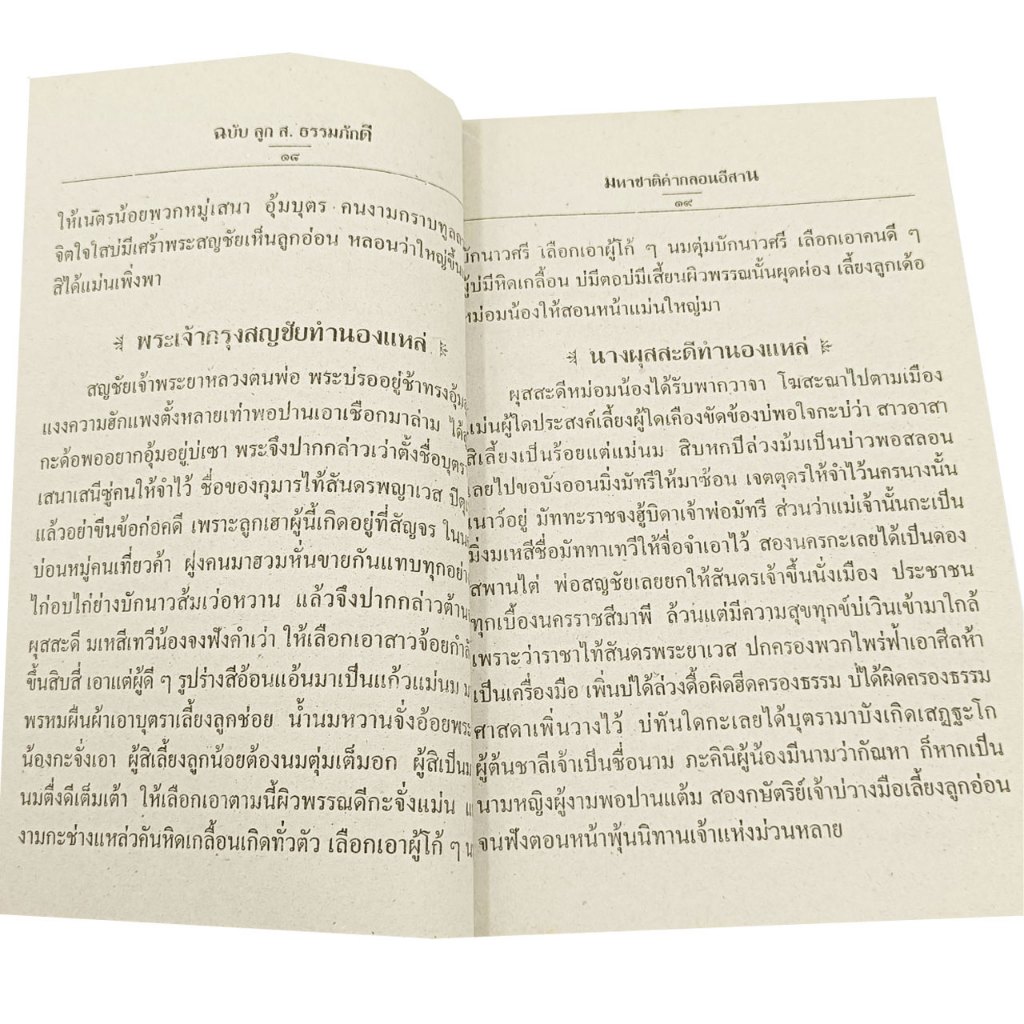 ฉบับ ลูก ส. ธรรมภักดี
๑๘
ให้เนตรน้อยพวกหมู่เสนา อุ้มบุตร คนงามกราบทูล
จิตใจใสบ่มีเศร้าพระสญชัยเห็นลูกอ่อน หลอนว่าใหญ่ขึ้น
สิได้แม่นเพิ่งพา
พระเจ้ากรุงสญชัยทำนองแหล่
สญชัยเจ้าพระยาหลวงตนพ่อ พระบ่รออยู่ช้าทรงอุ้ม
แงงความฮักแพงตั้งหลายเท่าพอปานเอาเชือกมาล่าม ได้
กะด้อพออยากอุ้มอยู่บ่เซา พระจึงปากกล่าวเว่าตั้งชื่อบุตร
เสนาเสนีซู่คนให้จำไว้ ชื่อของกุมารไท้สันดรพญาเวส
แล้วอย่าขืนข้อก่อคดี เพราะลูกเฮาผู้นี้เกิดอยู่ที่สัญจร
บ่อนหมู่คนเที่ยวค้า ฝูงคนมาฮวมหั่นขายกันแทบทุกอย่าง
ไก่อบไก่ย่างบักนาวส้มเว่อหวาน แล้วจึงปากกล่าวต้าน
ผุสสะดี มเหสีเทวีน้องจงฟังคำเว่า ให้เลือกเอาสาวจ้อย
ขึ้นสิบสี่ เอาแต่ผู้ดี ๆ รูปร่างสีอ้อนแอ้นมาเป็นแก้วแม่นม
พรหมผืนผ้าเอาบุตราเลี้ยงลูกซ่อย น้ำนมหวานจั่งอ้อย
น้องกะจั่งเอา ผู้สิเลี้ยงลูกน้อยต้องนมตุ่มเต็มอก ผู้สิเป็น
นมตึ่งดีเต็มเต้า ให้เลือกเอาตามนี้ผิวพรรณดีกะจั่งแม่น
งามกะช่างแหล่วคันหิดเกลื้อนเกิดทั่วตัว เลือกเอาผู้โก้ ๆ
มหาชาติคำกลอนอีสาน
๑๙
บักนาวศรี เลือกเอาผู้โก้ ๆ นมตุ่มบักนาวศรี เลือกเอาคนดี ๆ
ผู้บ่มีหิดเกลื้อน บ่มีตอบ่มีเสี้ยนผิวพรรณนั้นผุดผ่อง เลี้ยงลูกเด้อ
หม่อมน้องให้สอนหน้าแม่นใหญ่มา
นางผุสสะดีทำนองแหล่
ผุสสะดีหม่อมน้องได้รับพากวาจา โฆสะณาไปตามเมือง
แม่นผู้ใดประสงค์เลี้ยงผู้ใดเคืองขัดข้องบ่พอใจกะบ่ว่า สาวอาสา
สิเลี้ยงเป็นร้อยแต่แม่นม สิบหกปีล่วงม้มเป็นบ่าวพอสลอน
เลยไปขอบังออนมิ่งมัทรีให้มาซ้อน เจตตุดรให้จำไว้นครนางนั้น
เนาว์อยู่ มัททะราชจงฮู้บิดาเจ้าพ่อมัทรี ส่วนว่าแม่เจ้านั้นกะเป็น
มิ่งมเหสีชื่อมัททาเทวีให้จื่อจำเอาไว้ สองนครกะเลยได้เป็นดอง
สพานไต่ พ่อสญชัยเลยยกให้สันดรเจ้าขึ้นนั่งเมือง ประชาชน
ทุกเบื้องนครราชสีมาพี ล้วนแต่มีความสุขทุกข์บ่เวินเข้ามาใกล้
เพราะว่าราชาไท้สันดรพระยาเวส ปกครองพวกไพร่ฟ้าเอาศีลห้า
เป็นเครื่องมือ เพิ่นบ่ได้ล่วงดื้อผิดฮีดครองธรรม บ่ได้ผิดครองธรรม
ศาสดาเพิ่นวางไว้ บ่ทันใดกะเลยได้บุตรามาบังเกิดเสฏฐะโก
ผู้ต้นชาลีเจ้าเป็นชื่อนาม ภะคินิผู้น้องมีนามว่ากัณหา ก็หากเป็น
นามหญิงผู้งามพอปานแต้ม สองกษัตริย์เจ้าบ่วางมือเลี้ยงลูกอ่อน
จนฟังตอนหน้าพุ้นนิทานเจ้าแห่งม่วนหลาย